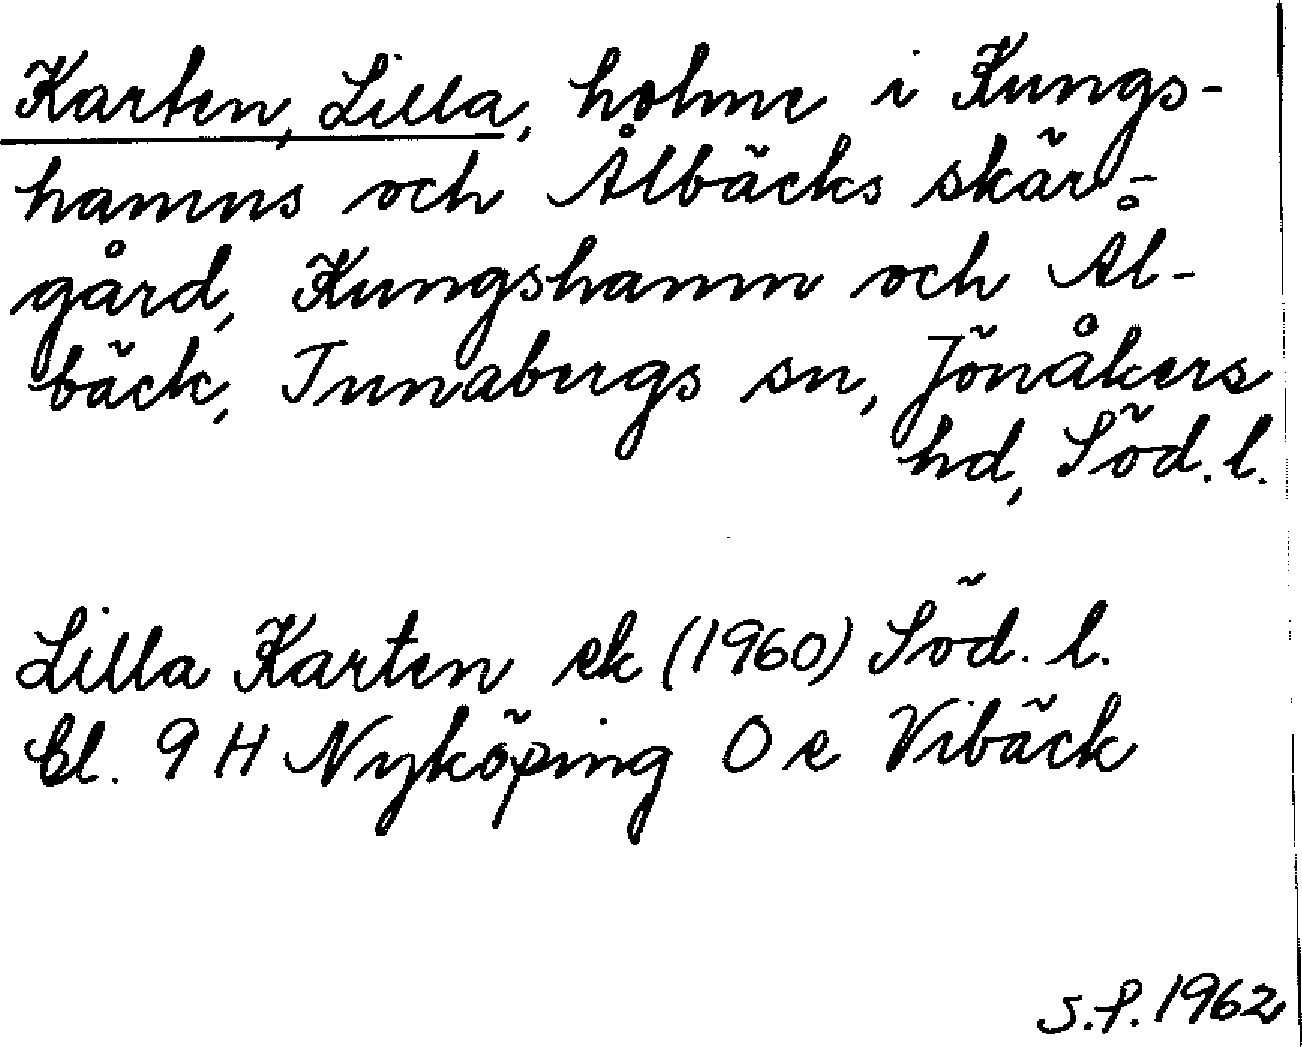 Karten, Lilla, holme i Kungs-
hamns och Ålbäcks skär-
gård, Kungshamn och Ål-
bäck, Tunabergs sn, Jönåkers
hd, Söd. l.
Lilla Karten ek (1960) Söd. l.
bl. 9 H Nyköping O e Vibäck
S.P. 1962